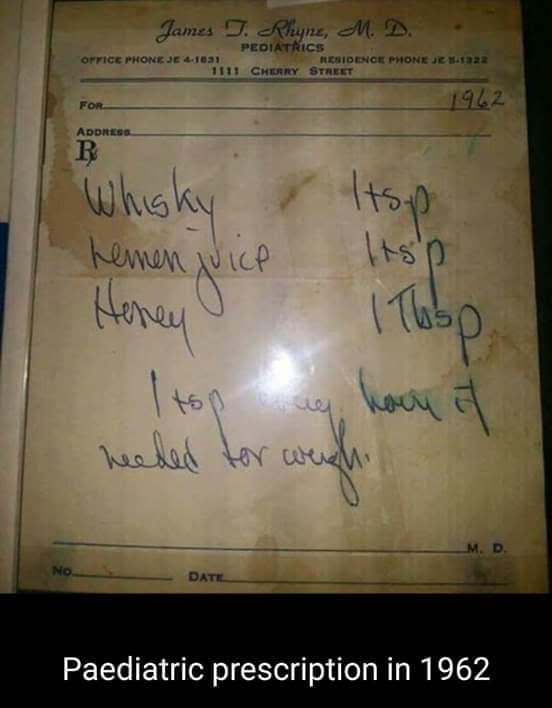 James T. Rhyne, M. D.
PEDIATRICS
OFFICE PHONE JE 4-1831 RESIDENCE PHONE JE 5-1322
1111 CHERRY STREET
FOR 1962
ADDRESS
℞
Whisky 1 tsp
Lemon juice 1 tsp
Honey 1 Tbsp
1 tsp hour if
needed for cough.
M. D.
NO. DATE
Paediatric prescription in 1962